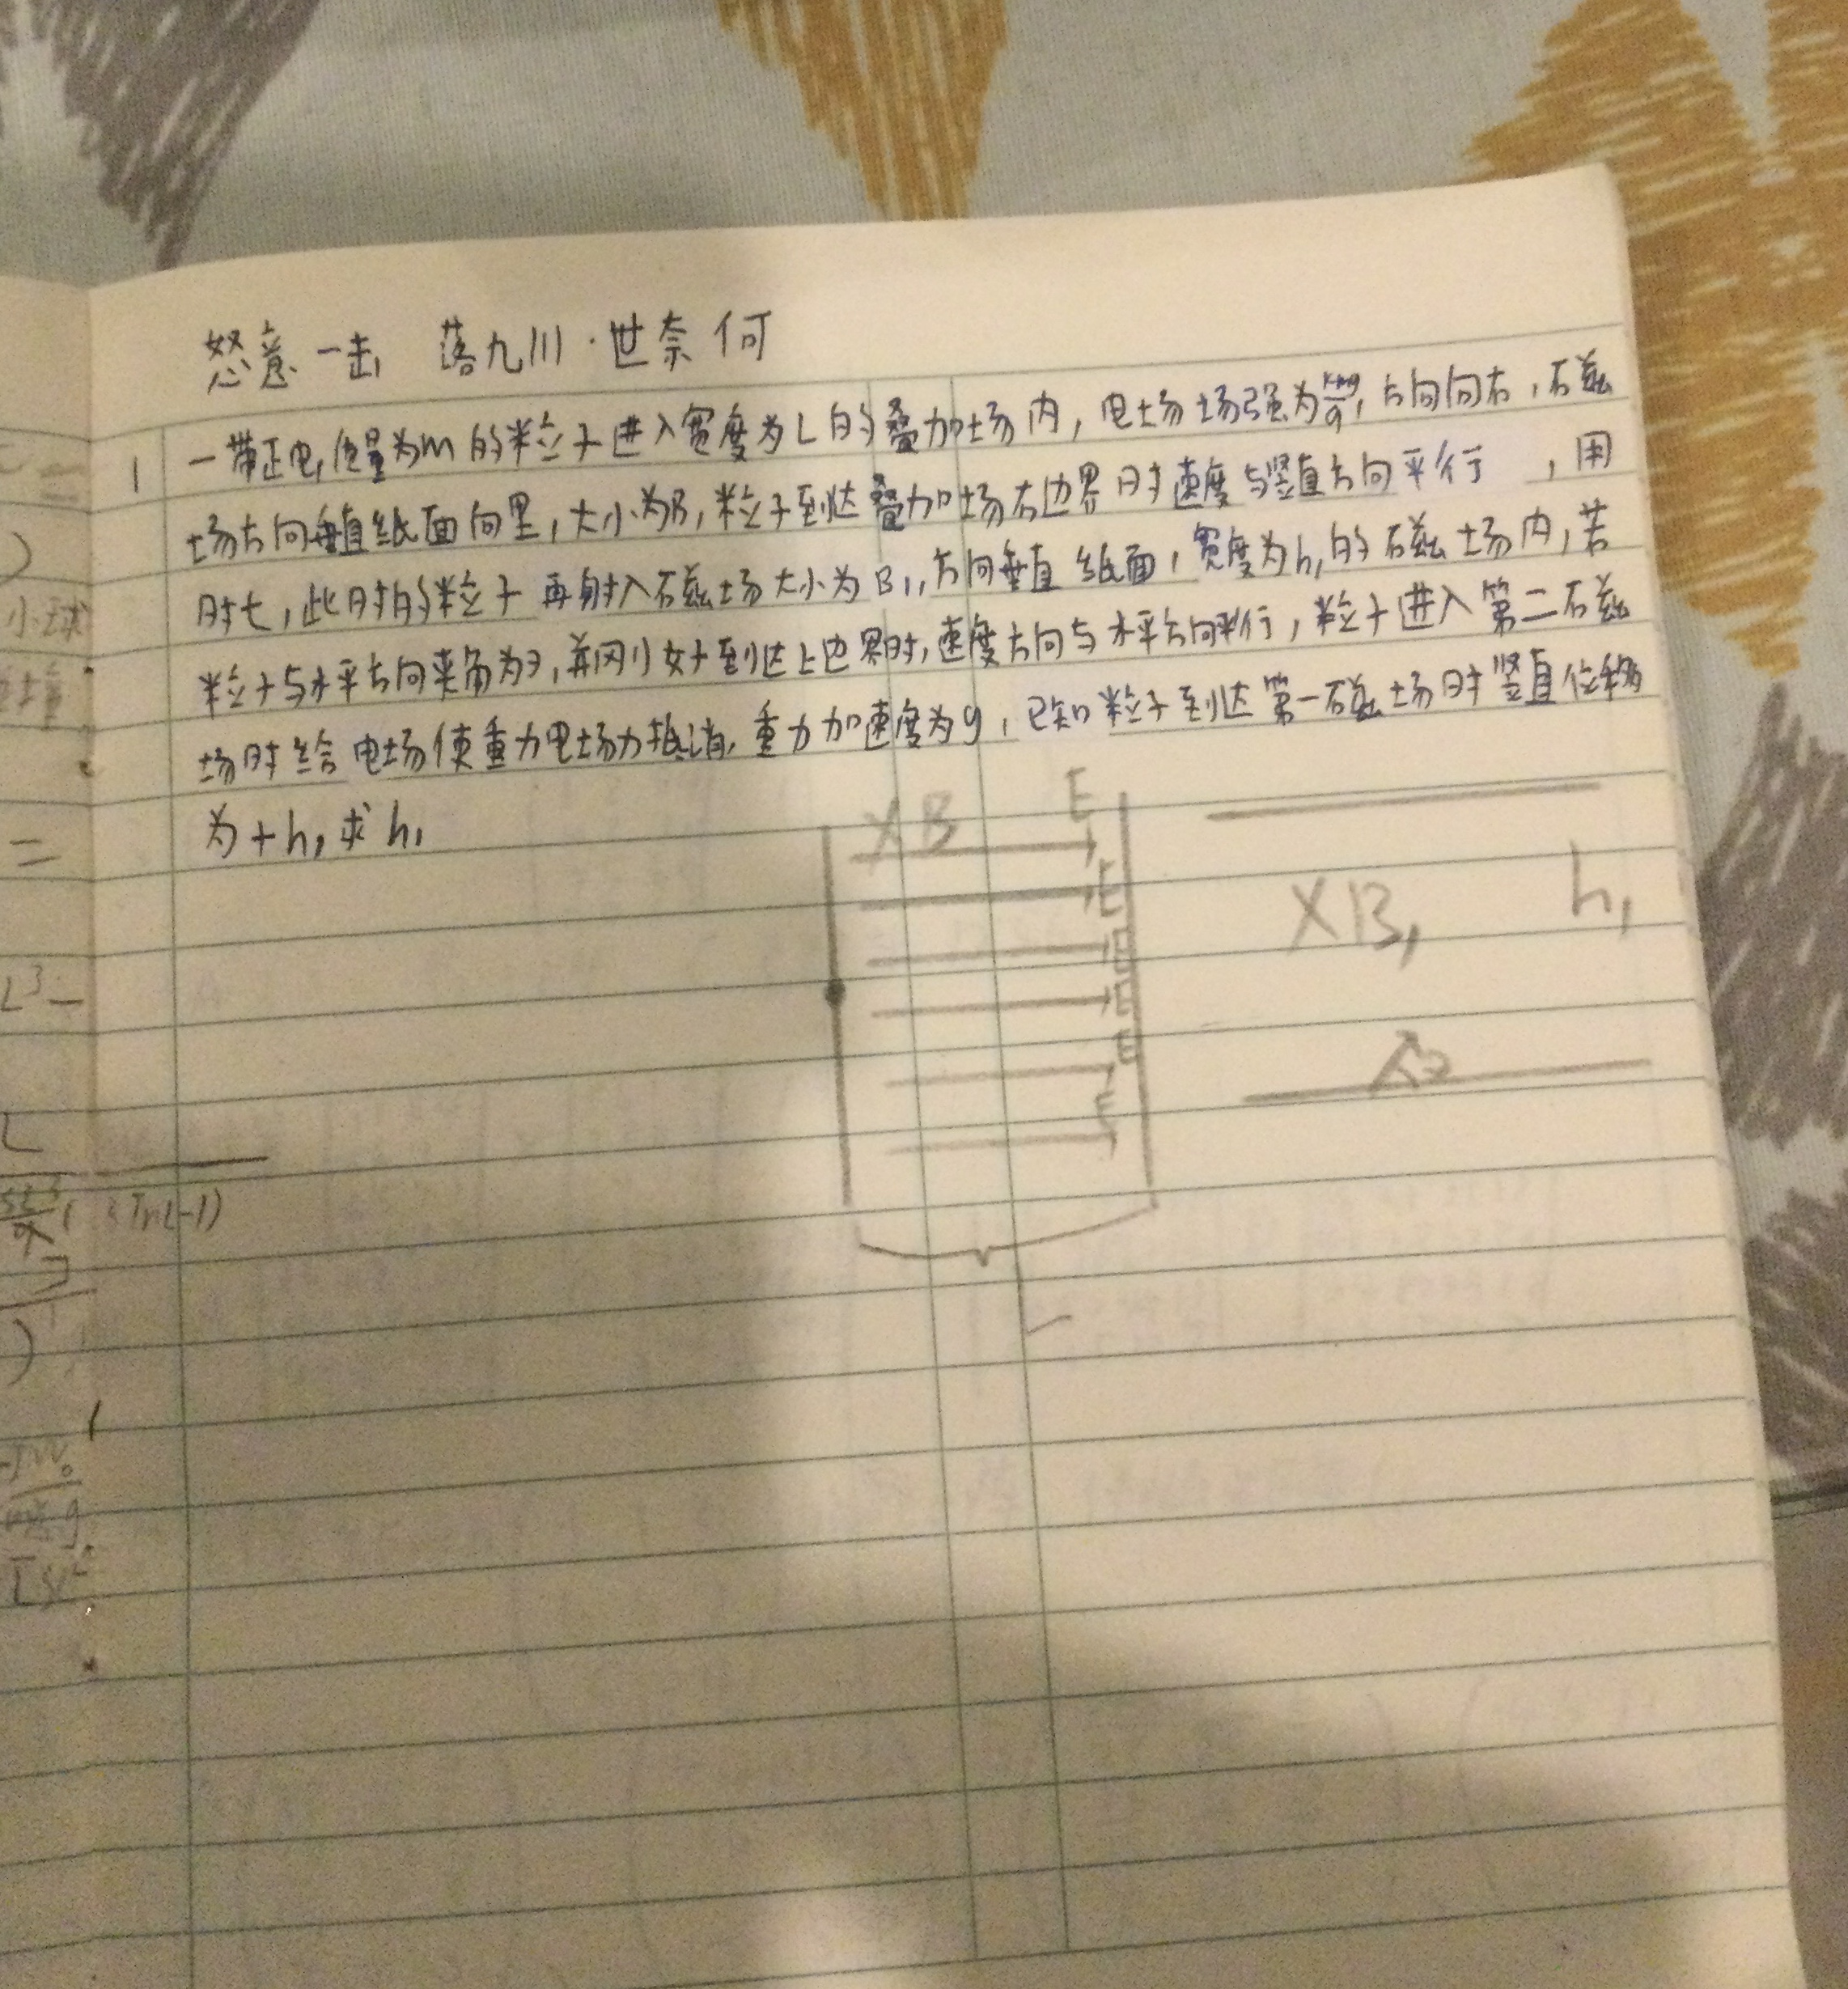 怒意一击 落九川·世奈何
1 一带正电,质量为m的粒子进入宽度为L的叠加场内,电场场强为kmg/q,方向向右,磁
场方向垂直纸面向里,大小为B,粒子到达叠加场右边界时速度与竖直方向平行,用
时t,此时的粒子再射入磁场大小为B₁,方向垂直纸面,宽度为h₁的磁场内,若
粒子与水平方向夹角为∂,并刚好到达上边界时,速度方向与水平方向平行,粒子进入第二磁
场时给电场使重力电场力抵消,重力加速度为g,已知粒子到达第一磁场时竖直位移
为+h,求h₁
XB E
E
E
E
E
E
XB₁ h₁
∂
L³-
小球
(Tn(-1)